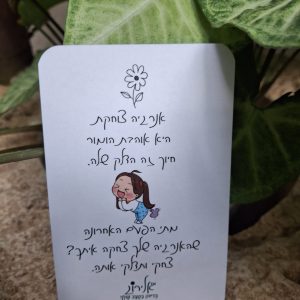 אנרגיה צוחקת
היא אוהבת הומור
חיוך זה הדלק שלה.
מתי הפעם האחרונה
שהאנרגיה שלך צחקה איתך?
צחקי ותדלקי אותה.